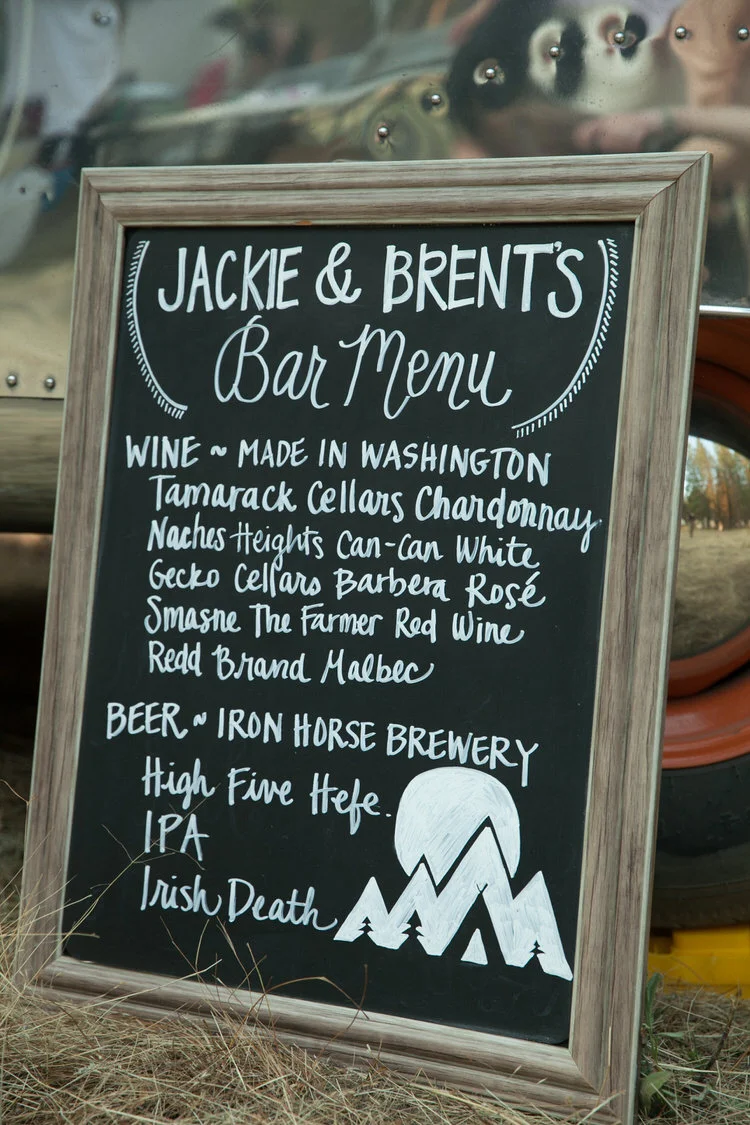 JACKIE & BRENT'S
Bar Menu
WINE ~ MADE IN WASHINGTON
Tamarack Cellars Chardonnay
Naches Heights Can-Can White
Gecko Cellars Barbera Rosé
Smasne The Farmer Red Wine
Redd Brand Malbec
BEER ~ IRON HORSE BREWERY
High Five Hefe.
IPA
Irish Death